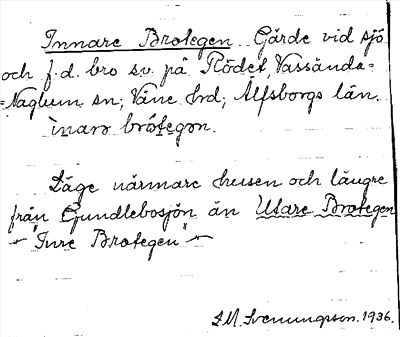 Innare Brotegen. Gärde vid sjö
och f.d. bro sv. på Rödet, Vassända-
-Naglum sn; Väne hrd; Älfsborgs län.
inarə bråtegən.
Läge närmare husen och längre
från Gundlebosjön än Utare Brotegen
"Inre Brotegen"
J.M. Svenungsson. 1936.